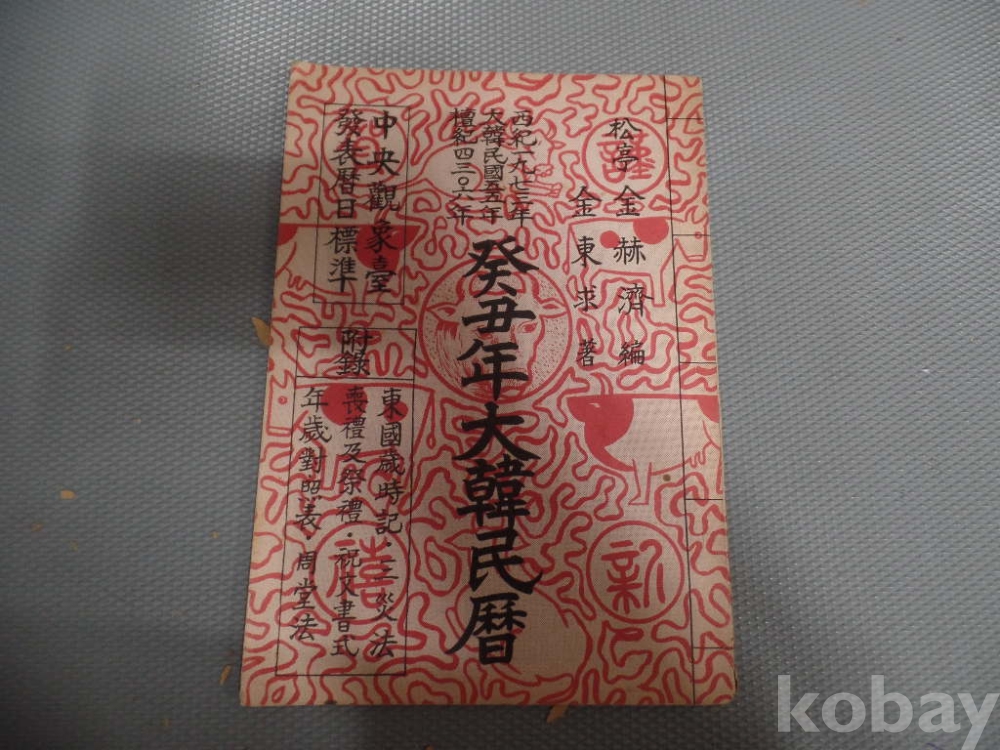 松亭 金赫濟 編
金東求 著
西紀一九七三年
大韓民國五五年
檀紀四三〇六年
癸丑年大韓民暦
中央觀象臺
發表暦日標準
附錄
東國歲時記·三災法
喪禮及祭禮·祝文書式
年歲對照表·周堂法
謹
賀
新
禧
kobay